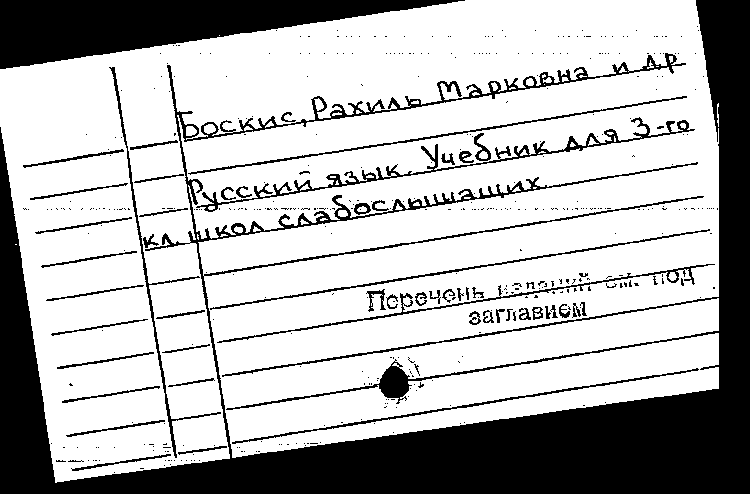 Боскис, Рахиль Марковна и др
Русский язык. Учебник для 3-го
кл. школ слабослышащих.
Перечень изданий см. под
заглавием